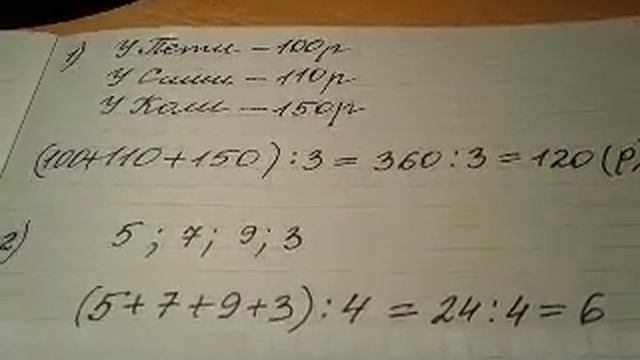 1) У Пети – 100р
У Саши – 110р
У Коли – 150р
(100+110+150):3 = 360:3 = 120(р)
2) 5; 7; 9; 3
(5+7+9+3):4 = 24:4 = 6